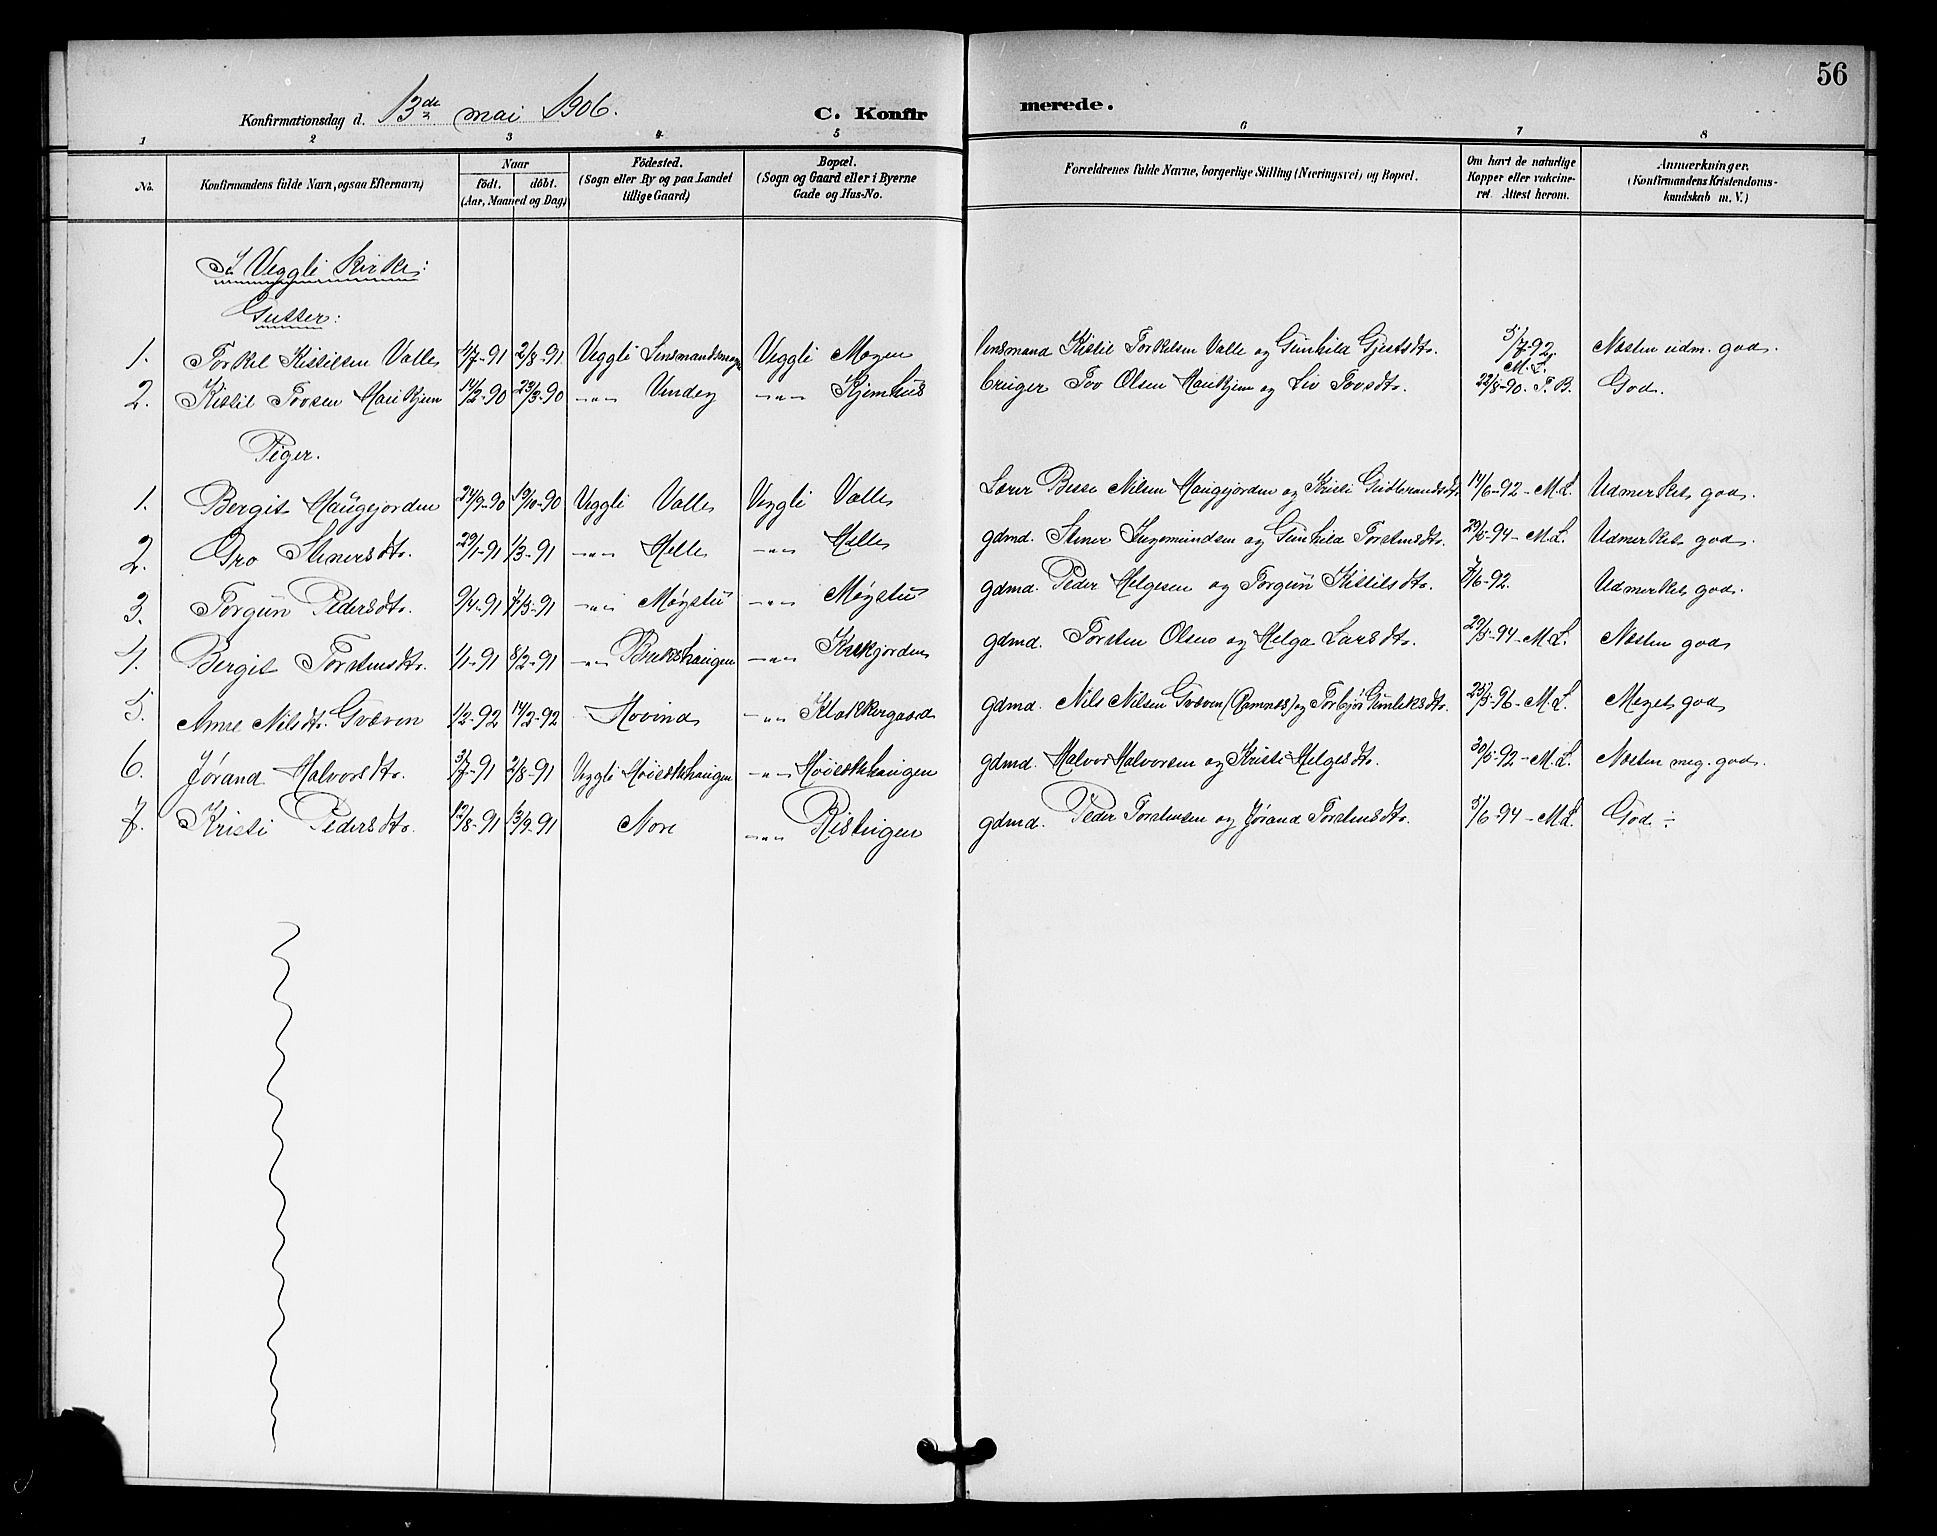 56
Konfirmationsdag d. 13de mai 1906. C. Konfirmerede.
1 2 3 4 5 6 7 8
No. Konfirmandens fulde Navn, ogsaa Efternavn) Naar født. døbt. (Aar, Maaned og Dag) Fødested. (Sogn eller By og paa Landet tillige Gaard) Bopæl. (Sogn og Gaard eller i Byerne Gade og Hus-No. Forældrenes fulde Navne, borgerlige Stilling (Næringsvei) og Bopæl. Om havt de naturlige Kopper eller vakcineret. Attest herom. Anmærkninger. (Konfirmandens Kristendomskundskab m. V.)
I Veggli Kirke:
Gutter:
1. Torkel Kittilsen Valle 4/7-91 2/8-91 Veggli Lensmandsmogen Veggli Mogen Lensmand Kittil Torkelsen Valle og Gunhild Gjestsdtr. 5/7-92. M.L. Næsten udm. god.
2. Kittil Tovsen Haukjem 14/2-90 23/3-90 -"- Vindeg -"- Kjemhus bruger Tov Olsen Haukjem og Liv Tovsdtr. 22/8-90. T.B. God.
Piger.
1. Bergit Haugejorden 24/9-90 19/10-90 Veggli Valle Veggli Valle Lærer Bisse Nilsen Haugejorden og Kristi Gudbrandsdtr. 14/6-92 - M.L. Udmerket god.
2. Gro Stenersdtr. 29/1-91 1/3-91 -"- Helle -"- Helle gdmd. Stener Ingemundsen og Gunhild Torstensdtr. 29/5-94 - M.L. Udmerket god.
3. Torgun Pedersdtr. 9/4-91 7/5-91 -"- Møystu -"- Møystu gdmd. Peder Helgesen og Torgun Kittilsdtr. 7/6-92. Udmerket god.
4. Bergit Torstensdtr. 1/1-91 8/2-91 -"- -"- gdmd. Torsten Olsen og Helga Larsdtr. 29/5-94 - M.L. Næsten god
5. Anne Nilsdtr. Gvæven 1/2-92 14/2-92 Hovind -"- Klokkergaard gdmd. Nils Nilsen Gvæven (Ramnes) og Torbjør Gunleksdtr. 23/5-96 - M.L. Meget god
6. Jørand Halvorsdtr. 3/7-91 2/8-91 Veggli -"- gdmd. Halvor Halvorsen og Kristi Helgesdtr. 30/5-92 - M.L. Næsten meg. god.
7. Kristi Pedersdtr. 12/8-91 13/9-91 Nore -"- Risteigen gdmd. Peder Torstensen og Jørand Torstensdtr. 5/6-94 - M.L. God ÷